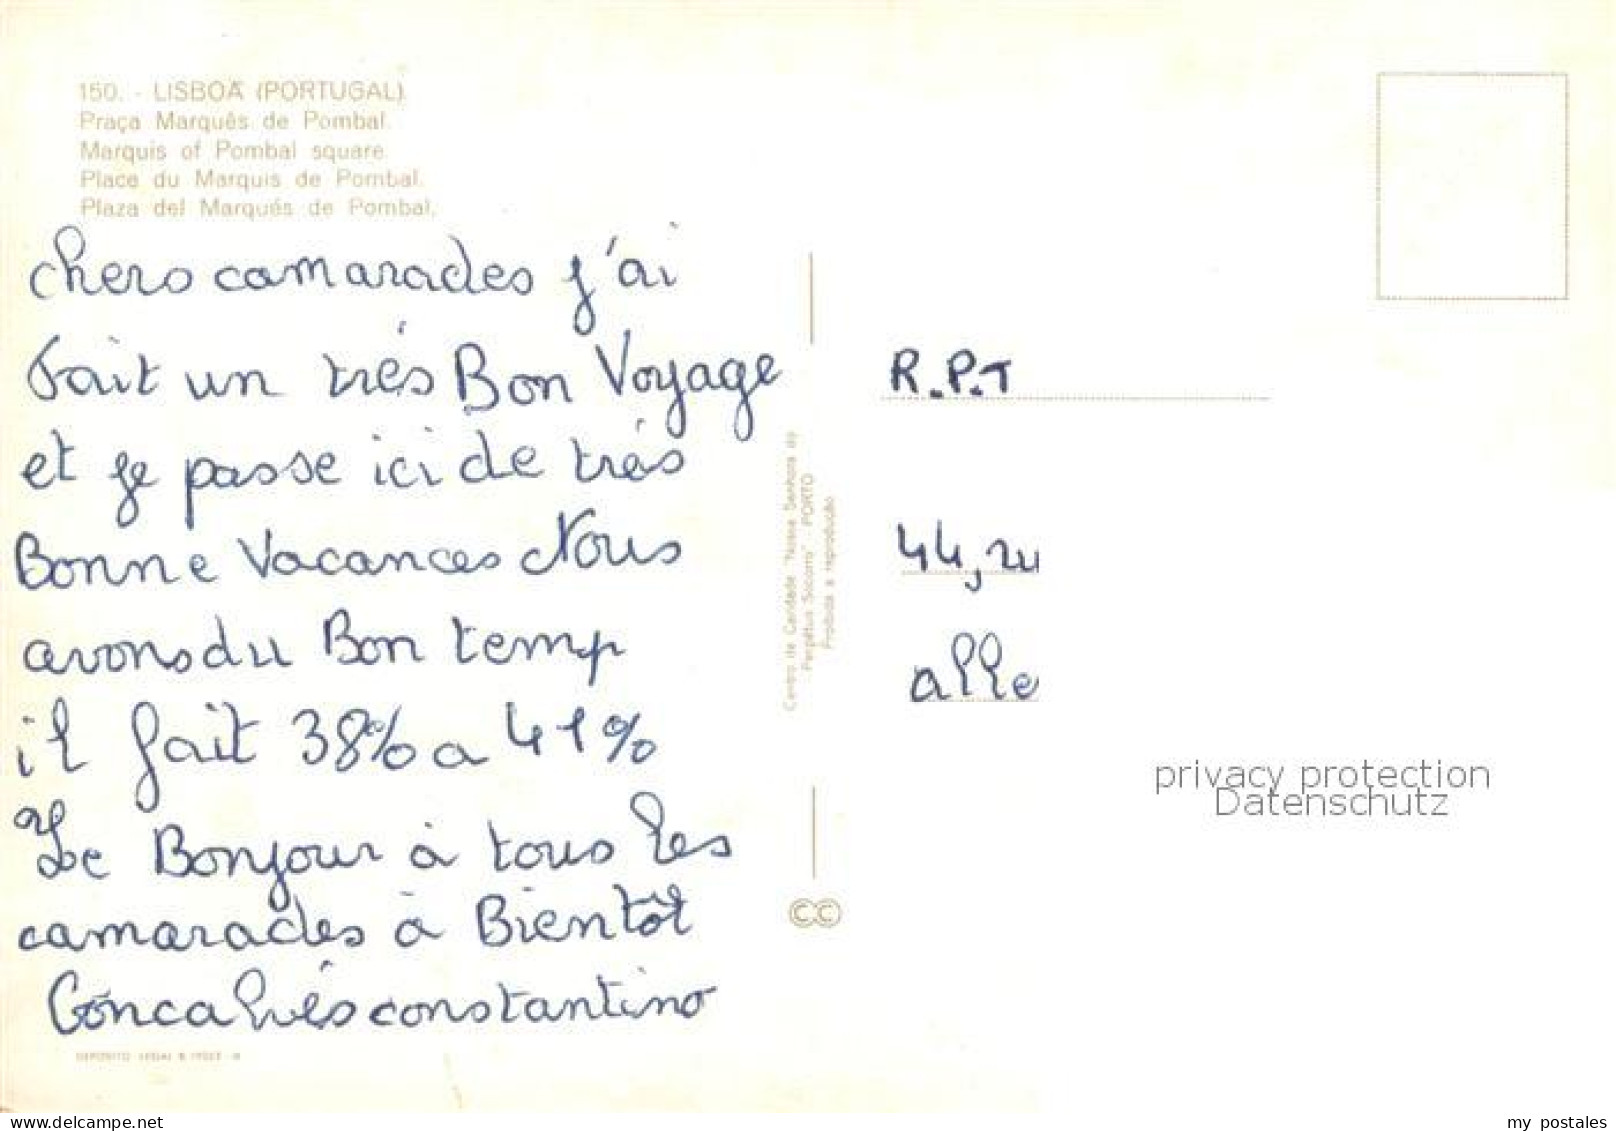 150. - LISBOA (PORTUGAL)
Praça Marquês de Pombal.
Marquis of Pombal square.
Place du Marquis de Pombal.
Plaza del Marqués de Pombal.
chers camarades j'ai
Fait un trés Bon Voyage
et je passe ici de trés
Bonne Vacances Nous
avons du Bon temp
il fait 38% a 41%
Le Bonjour à tous les
camarades à Bientôt
Goncalvés constantino
Centro de Caridade "Nossa Senhora do
Perpétuo Socorro" - PORTO
Proibida a reprodução
CC
R.P.T
44,
alle
privacy protection
Datenschutz
DEPOSITO LEGAL B.
delcampe.net
my_postales